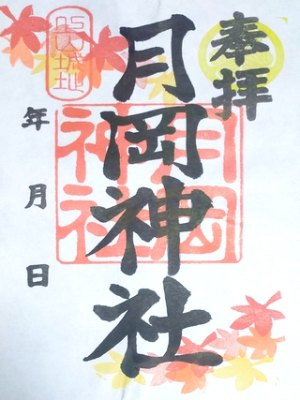 奉拝
月岡神社
年月日
月岡
神社